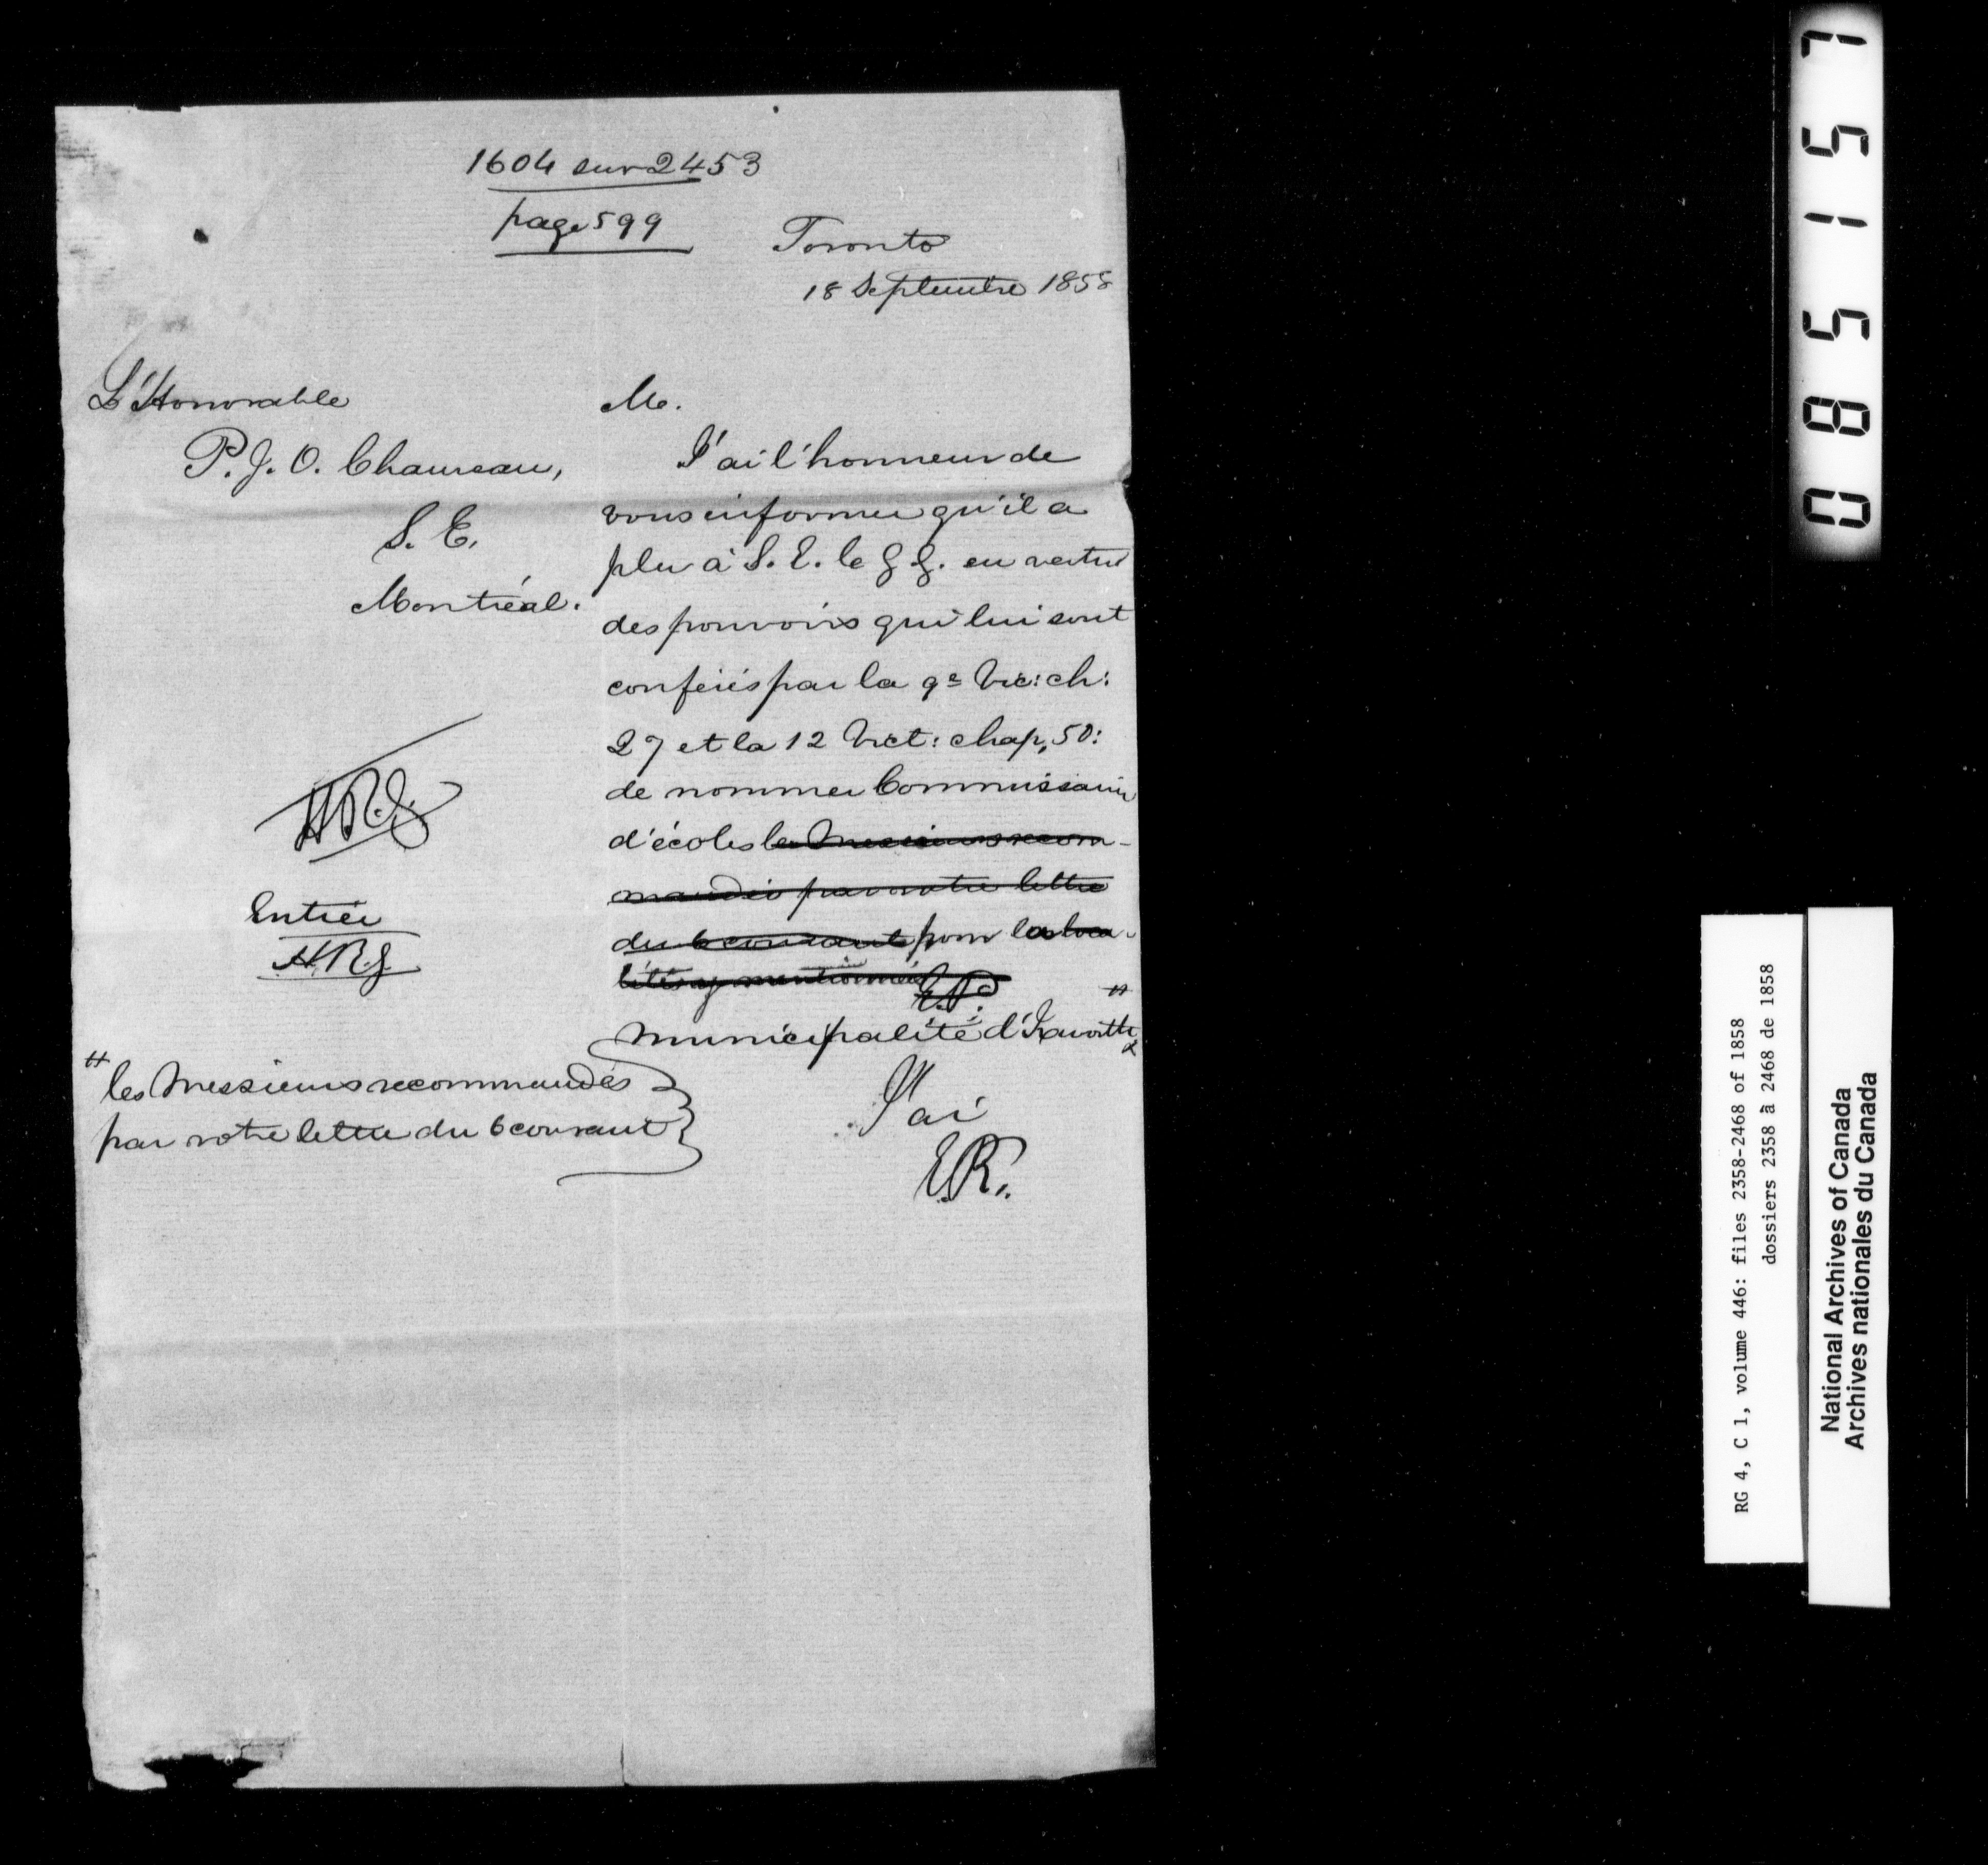 1604 sur 2453
page 599
Toronto
18 Septembre 1858
L'Honorable
P. J. O. Chauveau,
S. E.
Montréal.
M.
J'ai l'honneur de
vous informer qu'il a
plu à S. E. le G G. en vertu
des pouvoirs qui lui sont
conférés par la 9e Vic: ch:
27 et la 12 Vict: chap, 50:
de nommer Commissaires
d'écoles les Messieurs recom-
mandés par votre lettre
du 6 courant pour les loca-
lités y mentionnées
municipalité d'
J'ai
E.P.
HRG
Entrée
HRG
les Messieurs recommandés
par votre lettre du 6 courant
085157
RG 4, C 1, volume 446: files 2358-2468 of 1858
dossiers 2358 à 2468 de 1858
National Archives of Canada
Archives nationales du Canada